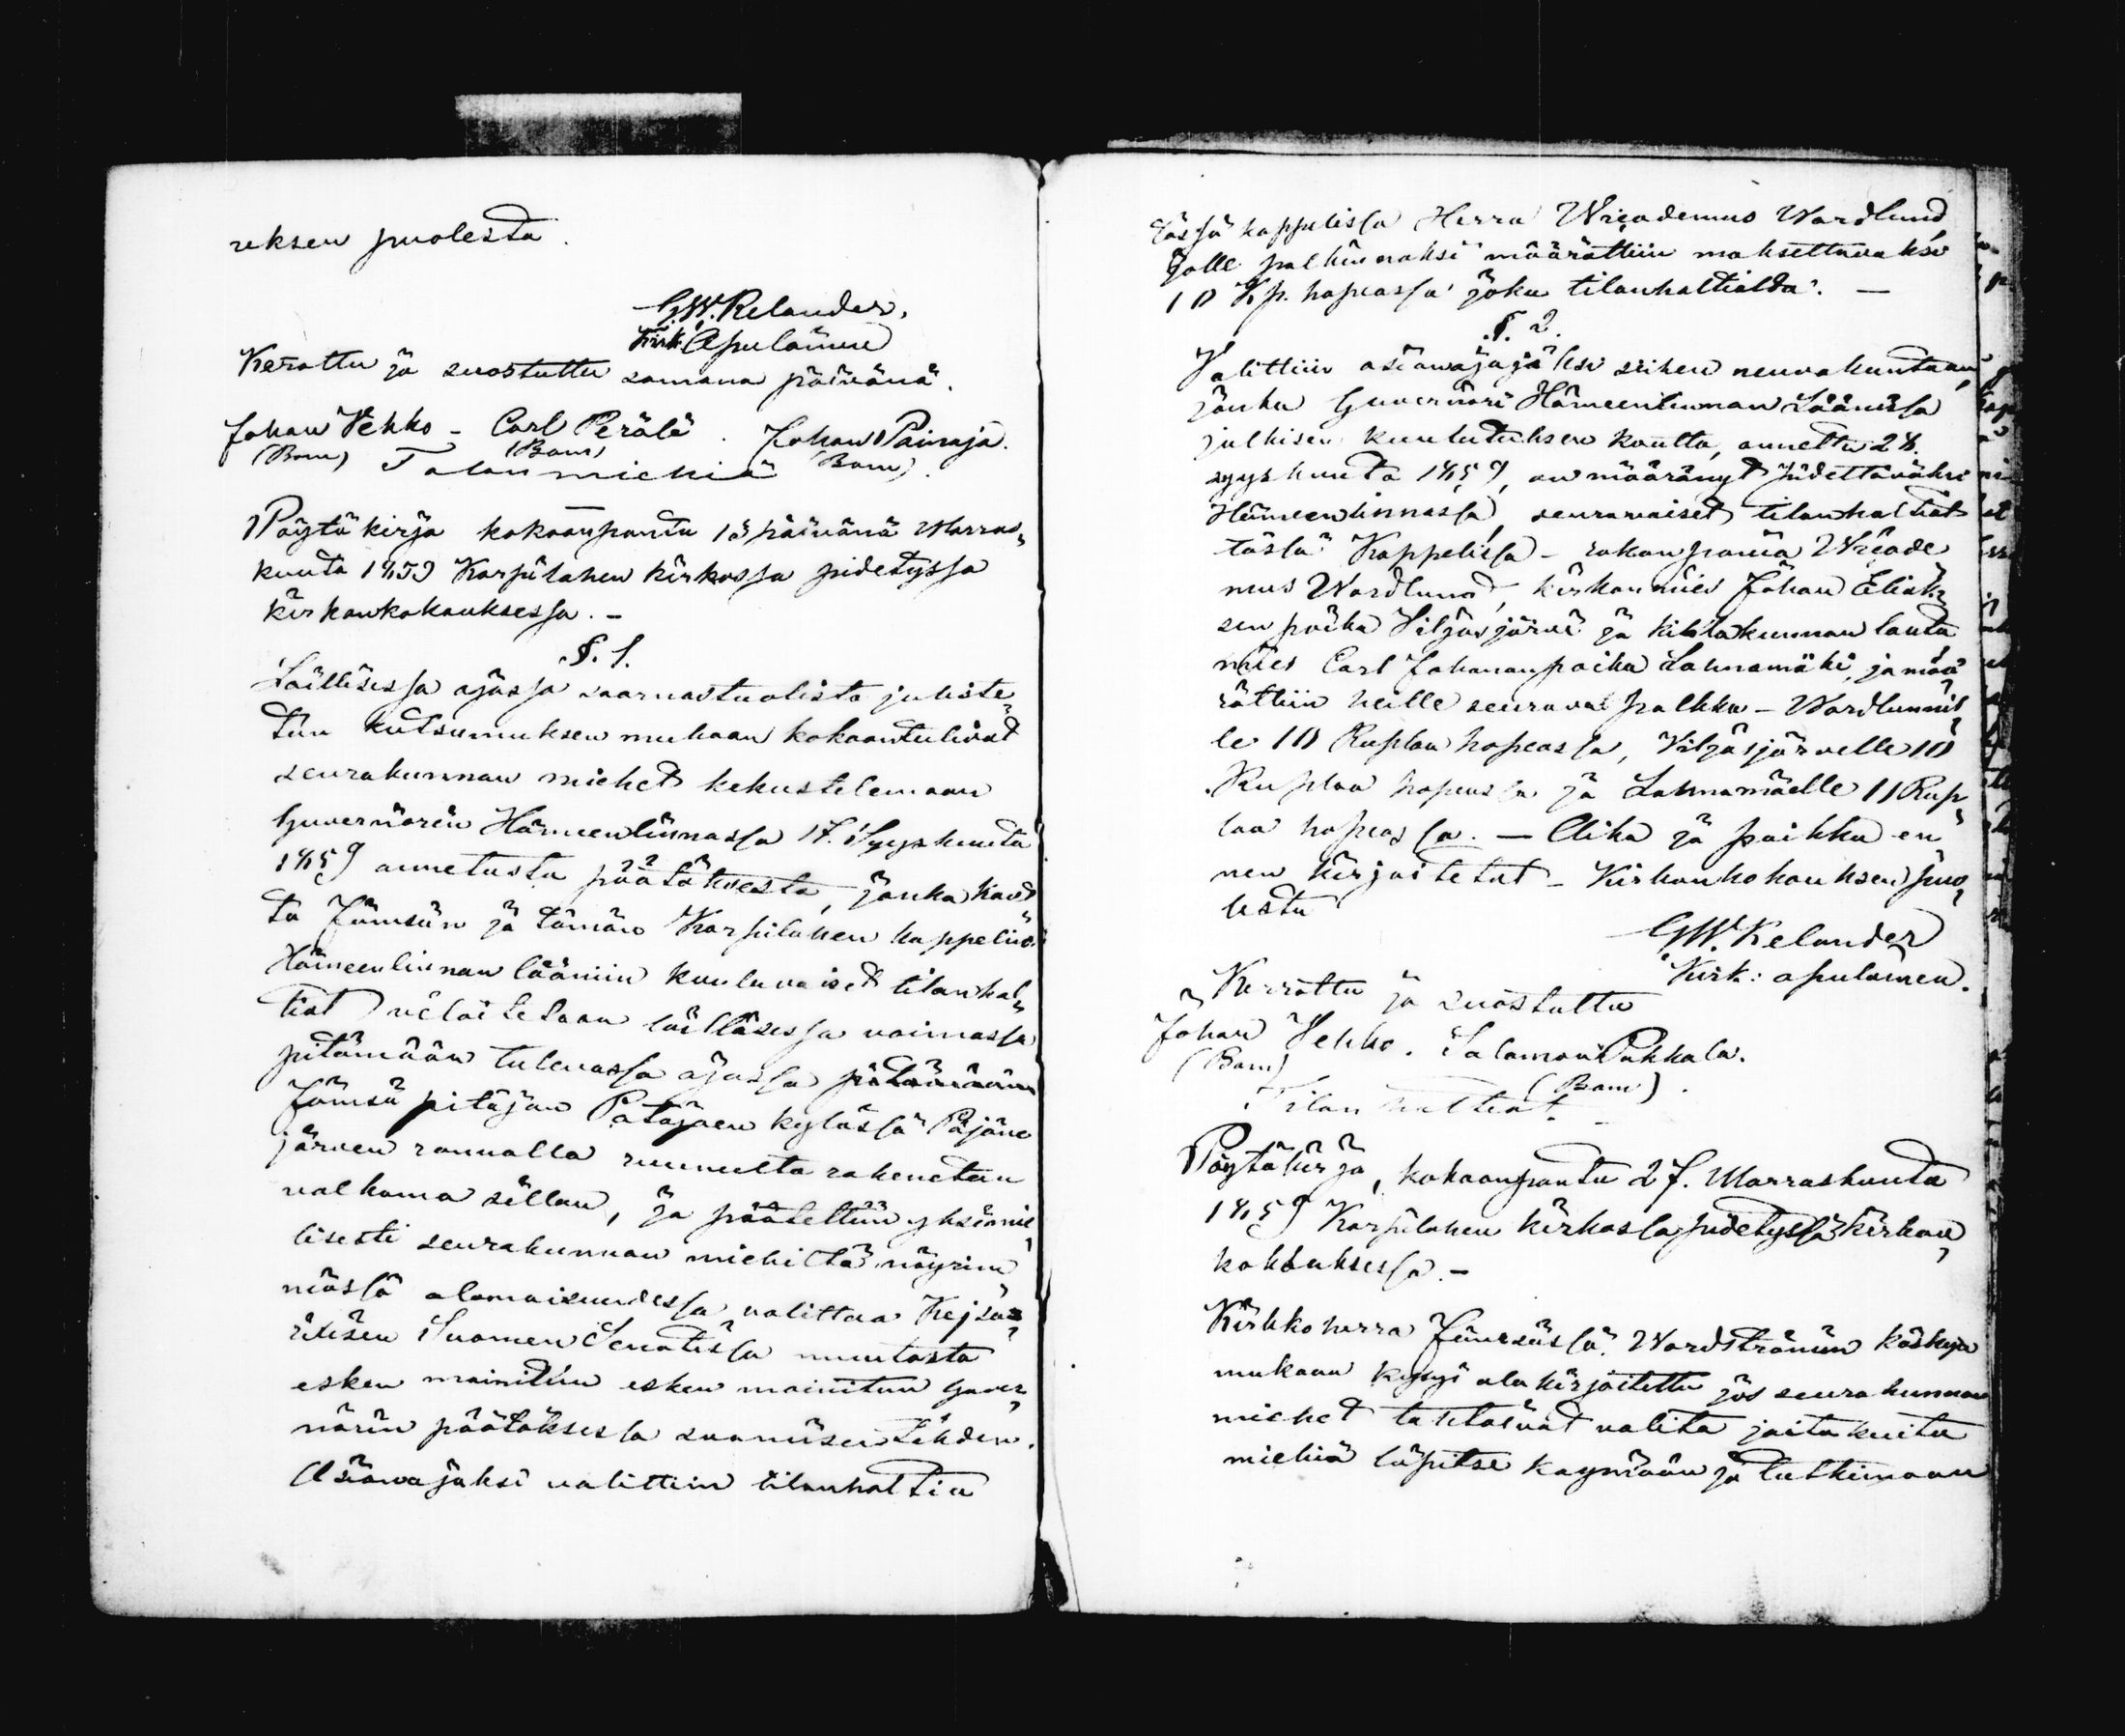 reksen puolesta.
G.W. Relander,
Kirk. Apulainen
Kerrottu ja suostuttu samana päivänä.
Johan Vehko – Carl Perälä. Johan Painaja.
(Bom) (Bom) (Bom)
Talon miehiä.
Pöytäkirja kokoonpantu 13 päivänä Marras„
kuuta 1859 Korpilahen kirkossa pidetyssä
kirkonkokouksessa. –
§. 1.
Laillisessa ajassa saarnastuolista juliste„
tun kutsumuksen mukaan kokoontulivat
seurakunnan miehet keskustelemaan
Guvernörin Hämeenlinnassa 17. Syyskuuta
1859 annetusta päätöksestä, jonka kaut
ta Jämsän ja tämän Korpilahen kappelin
Hämeenlinnan lääniin kuuluvaiset tilanhal„
tiat velvoitetaan laillisessa voimassa
pitämään tulevassa ajassa
Jämsä pitäjän Patajoen kylässä Päjäne
järven rannalla ruunulta rakenetun
valkama sillan, ja päätettiin yksimie„
lisesti seurakunnan miehiltä nöyrim„
mässä alamaisuudessa valittaa Kejsa„
rillisen Suomen Senatissa muutosta
esken mainitun esken mainitun Guver„
nörin päätöksessä saamisen tähden.
Asiawajaksi valittiin tilanhaltia
tässä kappelissa Herra Nicodemus Nordlund,
jolle palkinnoksi määrättiin maksettavaksi
10 Kp. hopeassa joka tilanhaltialda. –
§. 2.
Valittiin asiawajajaksi siihen neuvokuntaan,
jonka Guvernöri Hämeenlinnan Läänissä
julkisen kuulutuksen kautta, annettu 28.
syyskuuta 1859, on määrännyt pidettäväksi
Hämeenlinnassa, seuravaiset tilanhaltiat
tässä Kappelissa – Nicode
mus Nordlund, kirkonmies Johan Eliak„
sen poika Viljasjärvi ja kihlakunnan lauta
mies Carl Johananpoika Lahnamäki, ja mää
rättiin heille seurava palkka – Nordlunnil„
le 10 Ruplaa hopeassa, Viljasjärvelle 10
Ruplaa hopeassa ja Lahnamäelle 11 Rup„
laa hopeassa. – Aika ja paikka en„
nen kirjoitetut – Kirkonkokouksen puo„
lesta
G.W. Relander
Kirk: apulainen.
Kerrottu ja suostuttu
Johan Vehko. Salamon Pukkala.
(Bom) (Bom).
Tilanhaltiat.
Pöytäkirja, kokoonpantu 27. Marraskuuta
1859 Korpilahen kirkossa pidetyssä kirkon„
kokouksessa. –
Kirkkoherra Jämsässä Nordströmin käskyn
mukaan kysyi alakirjoitettu jos seurakunnan
miehet tahtoivat valita joita kuita
miehiä läpitse käymään ja tutkimaan